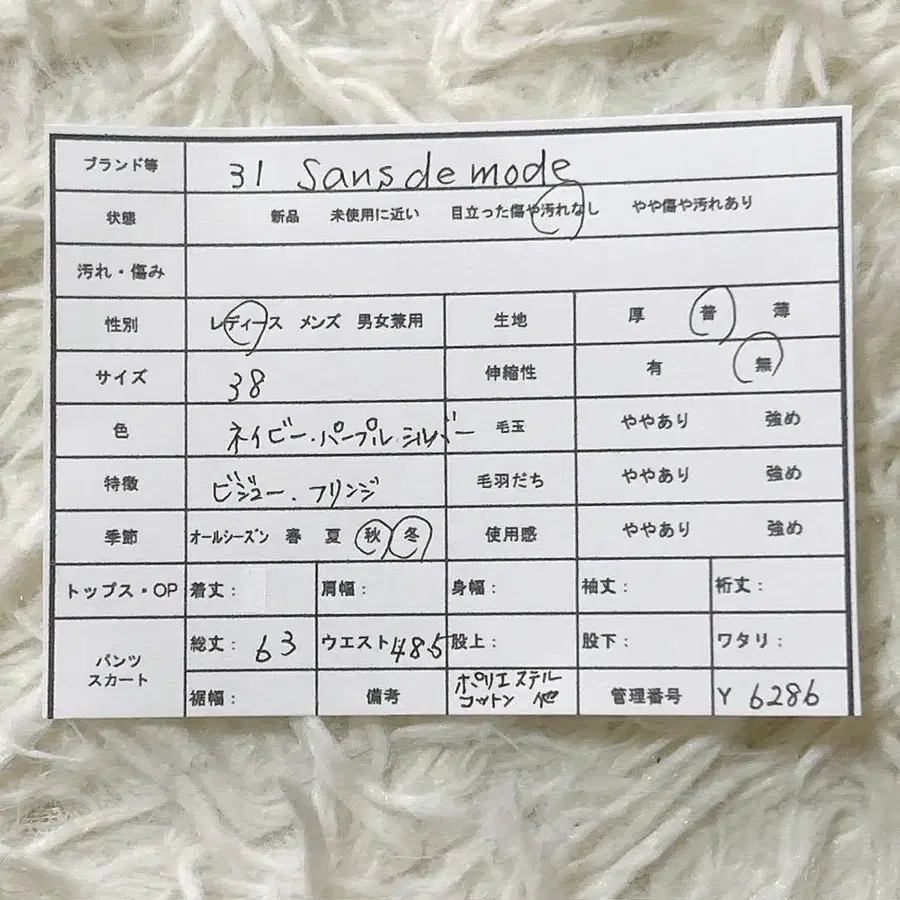 ブランド等 31 Sans de mode
状態 新品 未使用に近い 目立った傷や汚れなし やや傷や汚れあり
汚れ・傷み
性別 レディース メンズ 男女兼用 生地 厚 普 薄
サイズ 38 伸縮性 有 無
色 ネイビー・パープル シルバー 毛玉 ややあり 強め
特徴 ビジュー・フリンジ 毛羽だち ややあり 強め
季節 オールシーズン 春 夏 秋 冬 使用感 ややあり 強め
トップス・OP 着丈: 肩幅: 身幅: 袖丈: 裄丈:
パンツ
スカート
総丈: 63 ウエスト 485 股上: 股下: ワタリ:
裾幅: 備考 ポリエステル
コットン 他
管理番号 Y 6286